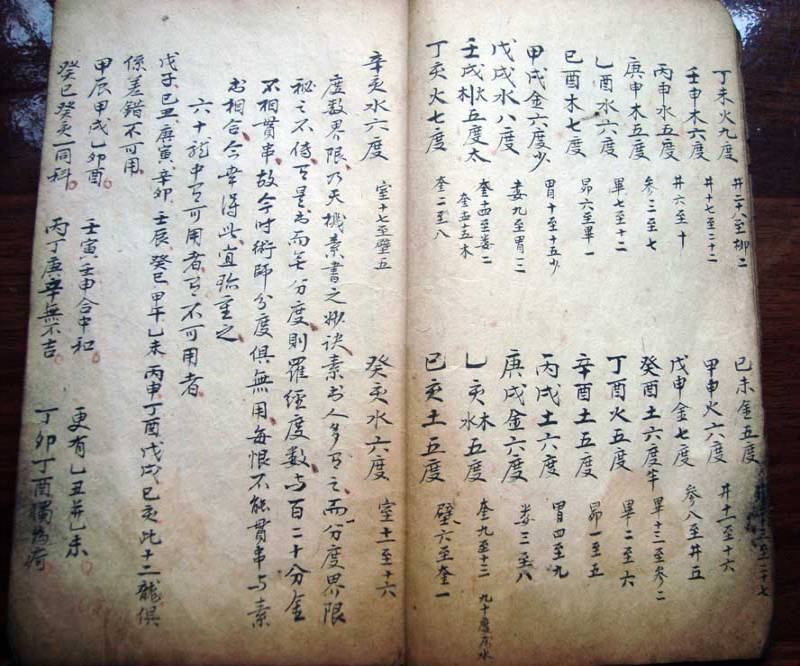 丁未火九度 井二十八至柳二 己未金五度 至二十七
壬申木六度 井十七至二十二 甲申火六度 井十一至十六
丙申水五度 井六至十 戊申金七度 參八至井五
庚申木五度 參三至七 癸酉土六度半 畢十三至參二
乙酉水六度 畢七至十二 丁酉火五度 畢二至六
己酉木七度 昴六至畢一 辛酉土五度 昴一至五
甲戌金六度少 胃十至十五少 丙戌土六度 胃四至九
戊戌水八度 婁九至胃三 庚戌金六度 婁三至八
壬戌五度太 奎十四至婁二 乙亥木水五度 奎九至十三
丁亥火七度 奎二至八 己亥土五度 壁六至奎一
辛亥水六度 室十七至壁五 癸亥水六度 室十一至十六
度数界限乃天機素書之妙诀素书人多有之而分度界限
秘之不传有是书而無分度则羅经度数与百二十分金
不相貫串故今时術師分度俱無用每恨不能貫串与素
书相合今幸得此宜珍重之
六十龍中有可用者有不可用者
戊子己丑庚寅辛卯壬辰癸巳甲午乙未丙申丁酉戊戌己亥此十二龍俱
係差錯不可用
甲辰甲戌乙卯酉 壬寅壬申合中和 更有乙丑并乙未
癸巳癸亥一同科 丙丁庚辛無不吉 丁卯丁酉獨為荷